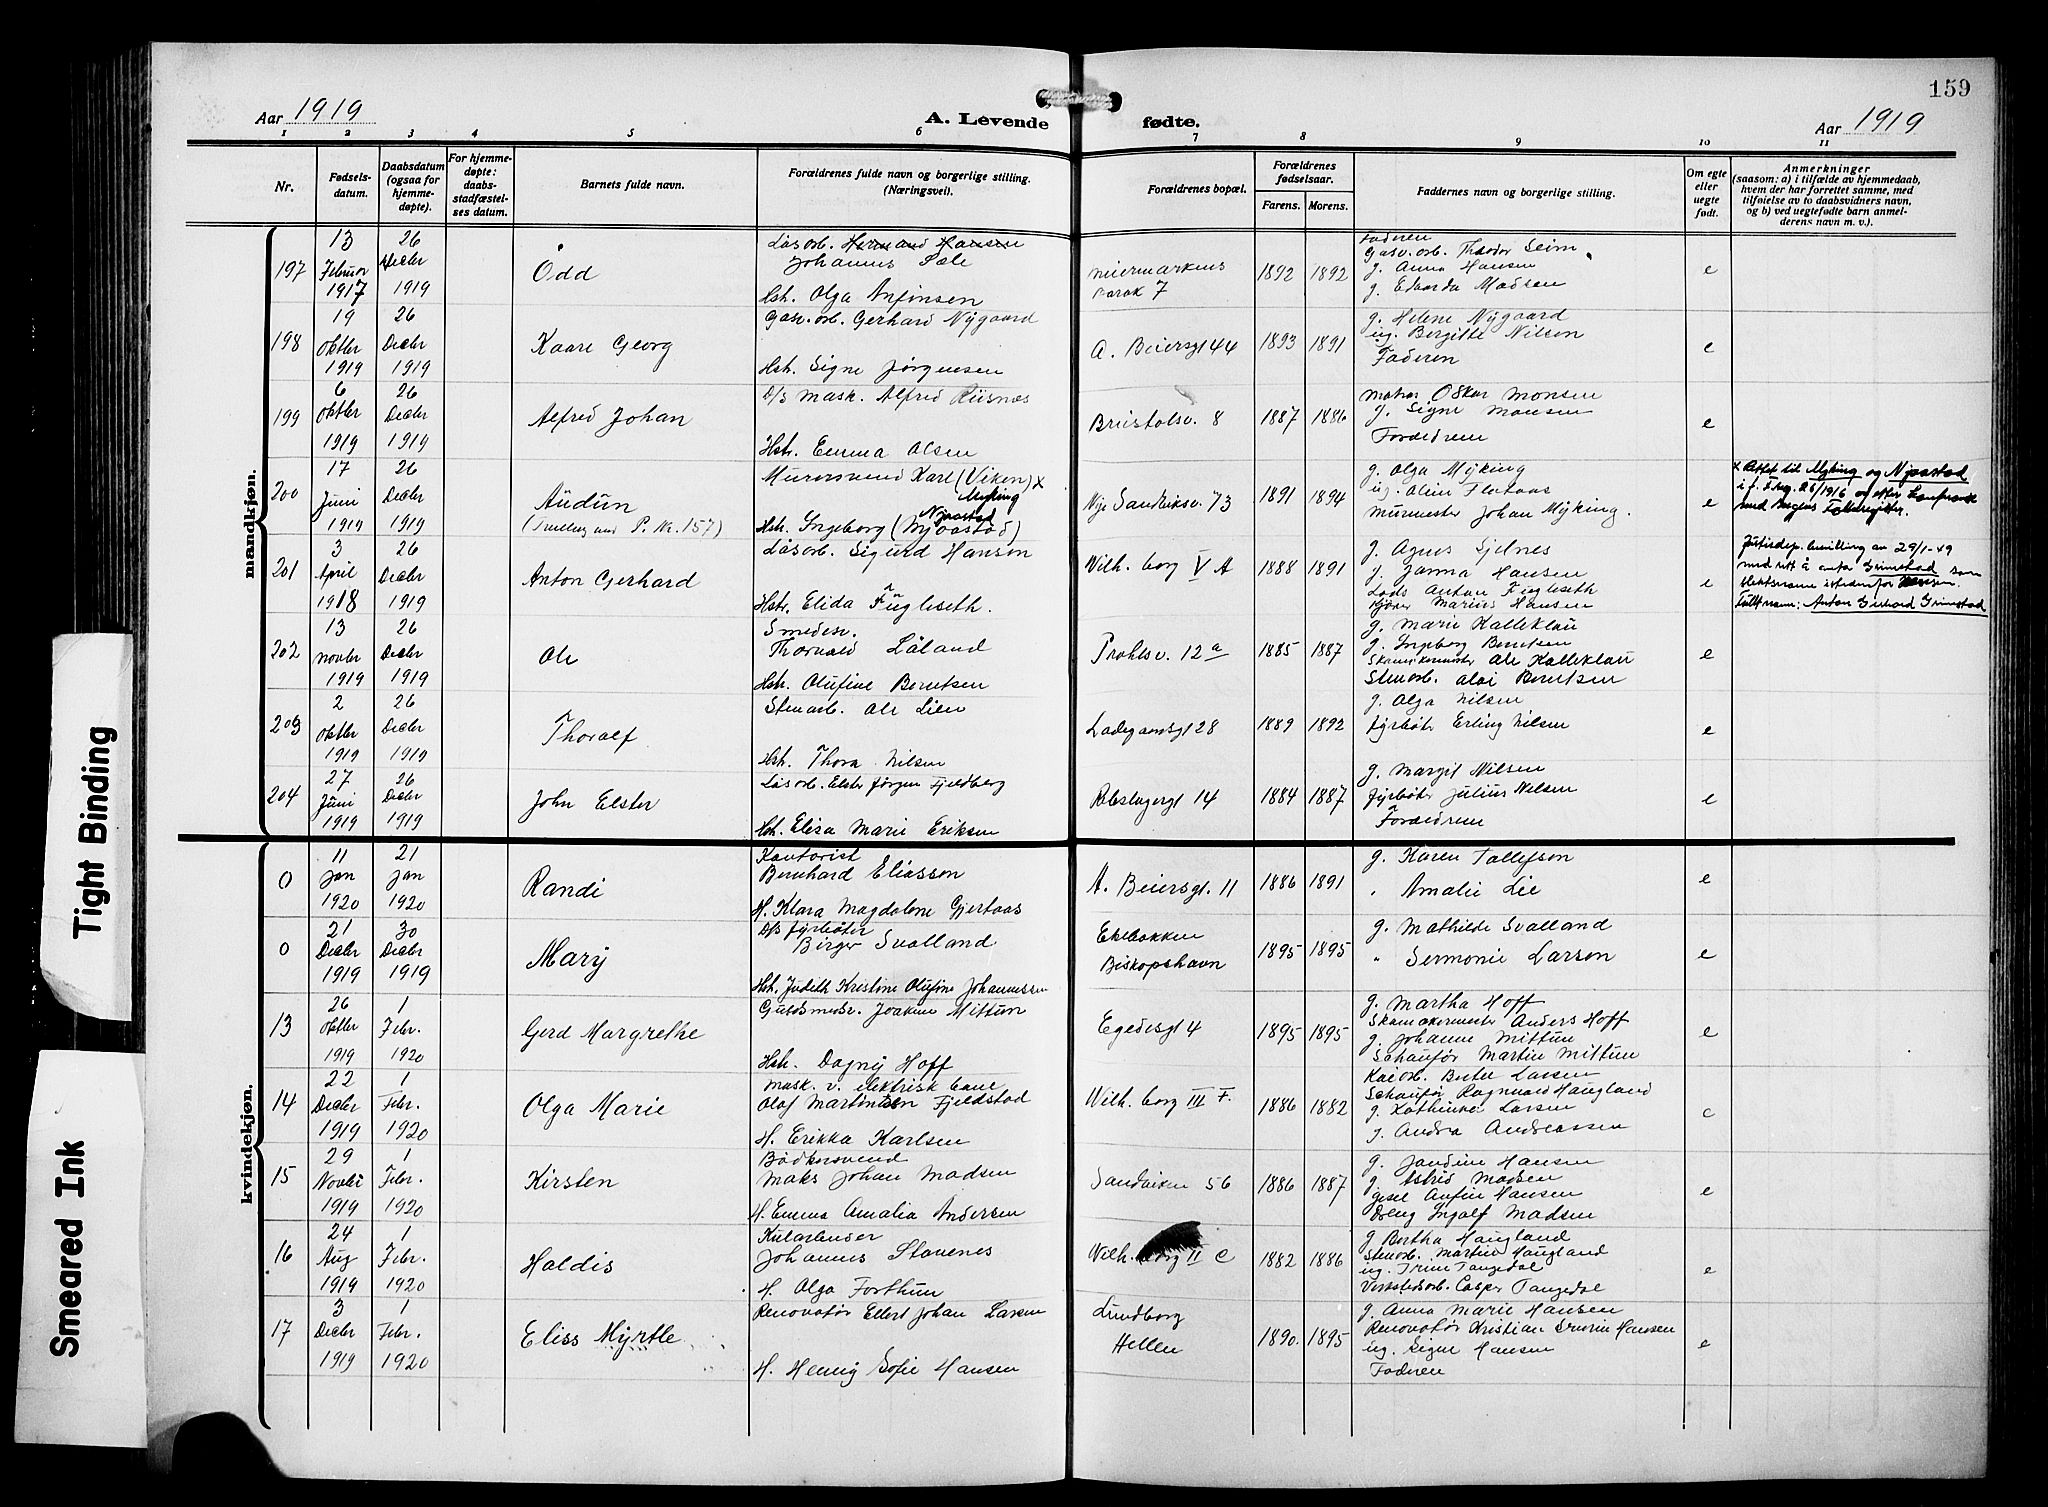 159
Aar 1919
A. Levende fødte.
Aar 1919
1 2 3 4 5 6 7 8 9 10 11
Nr.
Fødsels-
datum.
Daabsdatum
(ogsaa for
hjemme-
døpte).
For hjemme-
døpte:
daabs-
stadfæstel-
ses datum.
Barnets fulde navn.
Forældrenes fulde navn og borgerlige stilling.
(Næringsvei).
Forældrenes bopæl.
Forældrenes
fødselsaar.
Farens. Morens.
Faddernes navn og borgerlige stilling.
Om egte
eller
uegte
født.
Anmerkninger
(saasom: a) i tilfælde av hjemmedaab,
hvem der har forrettet samme, med
tilføielse av to daabsvidners navn,
og b) ved uegtefødte barn anmel-
derens navn m. v.).
mandkjøn.
197
13
Februar
1917
26
Decbr
1919
Odd
Løsarb. Herm and Hansen
Johannes Sæle
Hstr. Olga Anfinsen
Meiermarkens
Barak 7
1892 1892
Faderen
Gasv. arb. Theodor Seim
g. Anna Hansen
g. Edvarda Madsen
e
198
19
Oktbr
1919
26
Decbr
1919
Kaare Georg
Gasv. arb. Gerhard Nygaard
Hstr. Signe Jørgensen
A. Beiersgt 44
1893 1891
g. Helene Nygaard
ug. Bergitte Nilsen
Faderen
e
199
6
Oktbr
1919
26
Decbr
1919
Alfred Johan
D/S Mask. Alfred Riisnæs
Hstr. Emma Olsen
Bristolsv. 8
1887 1886
Matros Oskar Monsen
g. Signe Monsen
Forældrene
e
200
17
Juni
1919
26
Decbr
1919
Audun
(Tvilling med P. Nr. 157)
Murersvend Karl (Viken) x
Myking
Njaastad
Hstr. Ingeborg (Njaastad)
Nye Sandviksv. 73
1891 1894
g. Olga Myking
ug. Aline Flataas
Murmester Johan Myking.
e
x Rettet til Myking og Njaastad
201
3
April
1918
26
Decbr
1919
Anton Gerhard
Løsarb. Sigurd Hansen
Hstr. Elida Fugleseth.
Wilh. borg V A
1888 1891
g. Agnes Gjelnes
g. Janna Hansen
Lods Anton Fugleseth
Kjører Marius Hansen
e
Justisdep. bevilling av 29/1-49
med rett å anta Grimstad som
slektsnavn istedenfor Hansen.
Fullt navn: Anton Gerhard Grimstad
202
13
Novbr
1919
26
Decbr
1919
Ole
Smedesv.
Thorvald Låland
Hstr. Olufine Berntsen
Prahlsv. 12a
1885 1887
g. Marie Kalleklau
g. Ingeborg Berntsen
Skomakermester Ole Kalleklau
Stenarb. Aloi Berntsen
e
203
2
Oktbr
1919
26
Decbr
1919
Thoralf
Stenarb. Ole Lien
Hstr. Thora Nilsen
Ladegaardsgt 28
1889 1892
g. Olga Nilsen
Fyrbøter Erling Nilsen
e
204
27
Juni
1919
26
Decbr
1919
John Elster
Løsarb. Elster Jørgen Fjeldberg
Hstr. Elisa Marie Eriksen
Rebslagergt 14
1884 1887
g. Margit Nilsen
Fyrbøter Julius Nilsen
Forældrene
e
kvindekjøn.
0
11
Jan
1920
21
Jan
1920
Randi
Kontorist
Bernhard Eliassen
H. Klara Magdalene Gjertsaas
A. Beiersgt. 11
1886 1891
g. Karen Tollefsen
" Amalie Lie
e
0
21
Decbr
1919
30
Decbr
1919
Mary
D/S Fyrbøter
Birger Svalland
Hstr. Judith Kristine Olufine Johannessen
Ekebakken
Biskopshavn
1895 1895
g. Mathilde Svalland
" Sermonie Larsen
e
13
26
Oktbr
1919
1
Febr.
1920
Gerd Margrethe
Guldsmedsv. Joakim Mittun
Hstr. Dagny Hoff
Egedesgt 4
1895 1895
g. Martha Hoff
Skomakermester Anders Hoff
g. Johanne Mittun
Schaufør Martin Mittun
e
14
22
Decbr
1919
1
Febr.
1920
Olga Marie
Mask. v. elektrisk bane
Olaf Martinsen Fjeldstad
H. Erikka Karlsen
Wilh. borg III F.
1886 1882
Kaiarb. Larsen
Schaufør Ragnvald Haugland
g. Kathinka Larsen
g. Andra Andreassen
e
15
29
Novbr
1919
1
Febr.
1920
Kirsten
Bødkersvend
Maks Johan Madsen
H. Emma Amalia Andersen
Sandviken 56
1886 1887
g. Jandine Hansen
g. Astrid Madsen
Anfin Hansen
Dreng Ingolf Madsen
e
16
24
Aug
1919
1
Febr.
1920
Haldis
Kularbeider
Johannes Stavenes
H. Olga Forthun
Wilh. borg II C
1882 1886
g Bertha Haugland
Stenarb. Martin Haugland
ug. Trine Tangedal
Verkstedsarb. Casper Tangedal
e
17
3
Decbr
1919
1
Febr.
1920
Eliss Myrtle
Renovatør Ellert Johan Larsen
H. Henny Sofie Hansen
Lundborg
Hellen
1890. 1895
g. Anna Marie Hansen
Renovatør Kristian Severin Hansen
ug. Signe Hansen
Faderen
e
Tight Binding
Smeared Ink